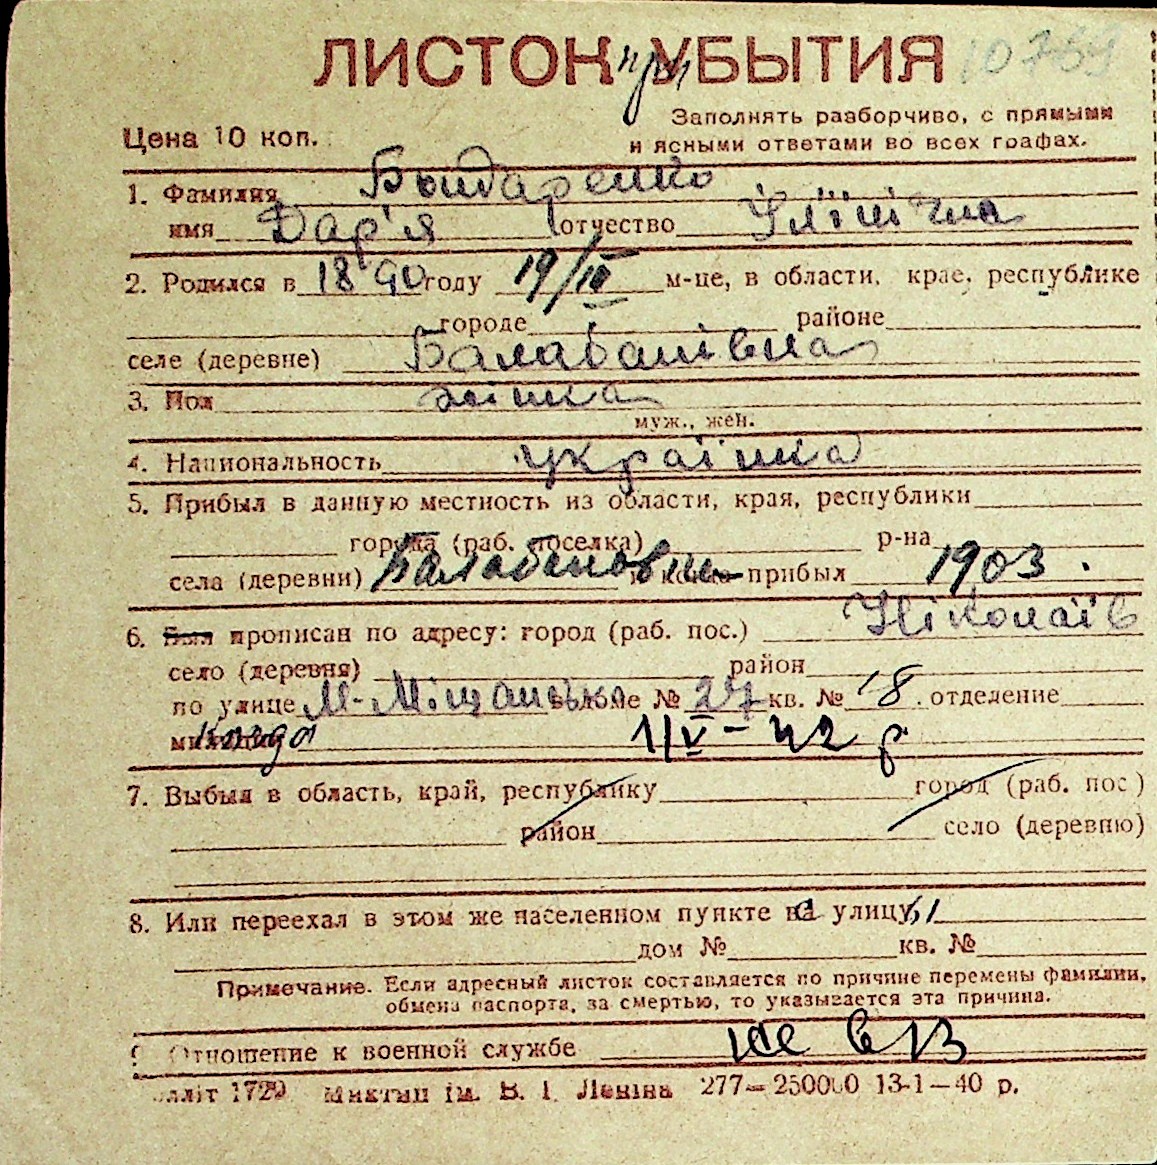 ЛИСТОК при УБЫТИЯ 10769
Заполнять разборчиво, с прямыми
Цена 10 коп. и ясными ответами во всех графах.
1. Фамилия Бындаренко
имя Дар'я отчество Іллінічна
2. Родился в 1890 году 19/III м-це, в области, крае, республике
городе районе
селе (деревне) Балабанівна
3. Пол жінка
муж., жен.
4. Национальность українка
5. Прибыл в данную местность из области, края, республики
города (раб. поселка) р-на
села (деревни) Балабановки и когда прибыл 1903.
6. Был прописан по адресу: город (раб. пос.) Ніколаїв
село (деревня) район
по улице М-Міщанська в доме № 27 кв. № 18. отделение
милиции когда 1/V-42 р
7. Выбыл в область, край, республику город (раб. пос)
район село (деревню)
8. Или переехал в этом же населенном пункте на улицу
дом № кв. №
Примечание. Если адресный листок составляется по причине перемены фамилии,
обмена паспорта, за смертью, то указывается эта причина.
9. Отношение к военной службе
1720 ім. В. І. Леніна 277—250000 13-1—40 р.